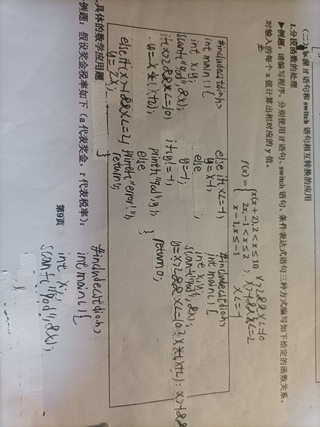 (二)掌握 if 语句和 switch 语句相互转换的应用
1.分段函数的处理
▶例题:请编写程序,分别使用 if 语句、switch 语句、条件表达式语句三种方式编写如下给定的函数关系。
对输入的每个 x 值计算出相对应的 y 值。
f(x)= x(x+2), 2<x≤10
2x, -1<x≤2
x-1, x≤-1
x>2&&x<=10
x>-1&&x<=2
x<=-1
#include<stdio.h>
int main(){
int x,y;
scanf("%d",&x);
if(x>2&&x<=10)
y=x*(x+2);
else if(x>-1&&x<=2)
y=2*x;
else if(x<=-1)
y=x-1;
else
y=-1;
if(y!=-1)
printf("%d",y);
else
printf("error!");
return 0;
}
#include<stdio.h>
int main(){
int x,y;
scanf("%d",&x);
y=x>2&&x<=10?x*(x+2):x>-1&&
return 0;
}
具体的数学应用题
例题:假设奖金税率如下(a 代表奖金,r 代表税率):
#include<stdio.h>
int main(){
int x,
scanf("%d",&x);
第9页